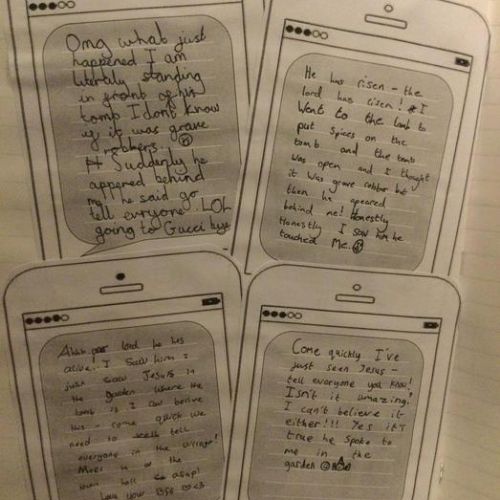 Omg what just
happened I am
literaly standing
in front of his
tomb I dont know
if it was grave
robbers.
Suddenly he
appered behind
me he said go
tell evryone. LOL
going to Gucci
He has risen – the
lord has risen! I
went to the tomb to
put spices on the
tomb and the tomb
was open and I thought
it was grave robber but
then he apeared
behind me! Honestly
Honestly I saw him he
touched Me.
lord he his
alive!. I saw him I
just saw Jesus in
the garden where the
tomb is I
this – come quick we
need to tell
everyone in the
town hall asap!
Love your
Come quickly I've
just seen Jesus –
tell everyone you know!
Isn't it amazing!
I can't believe it
either!!! Yes it's
true he spoke to
me in the
garden